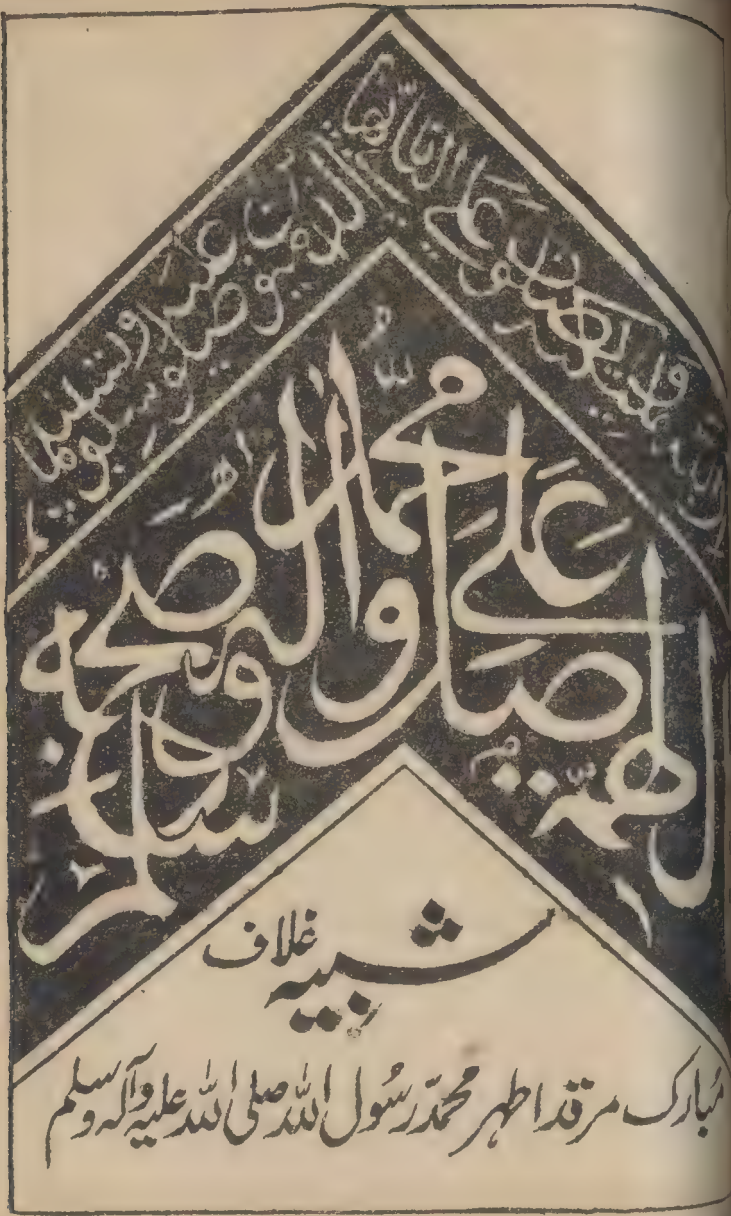 ان الله وملئكته يصلون على النبي يا ايها الذين آمنوا صلوا عليه وسلموا تسليما
اللهم صل على محمد وآله وصحبه وسلم
شبیہ غلاف
مبارک مرقد اطہر محمدّ رسُول اللہ صلی اللہ علیہ وآلہ وسلم